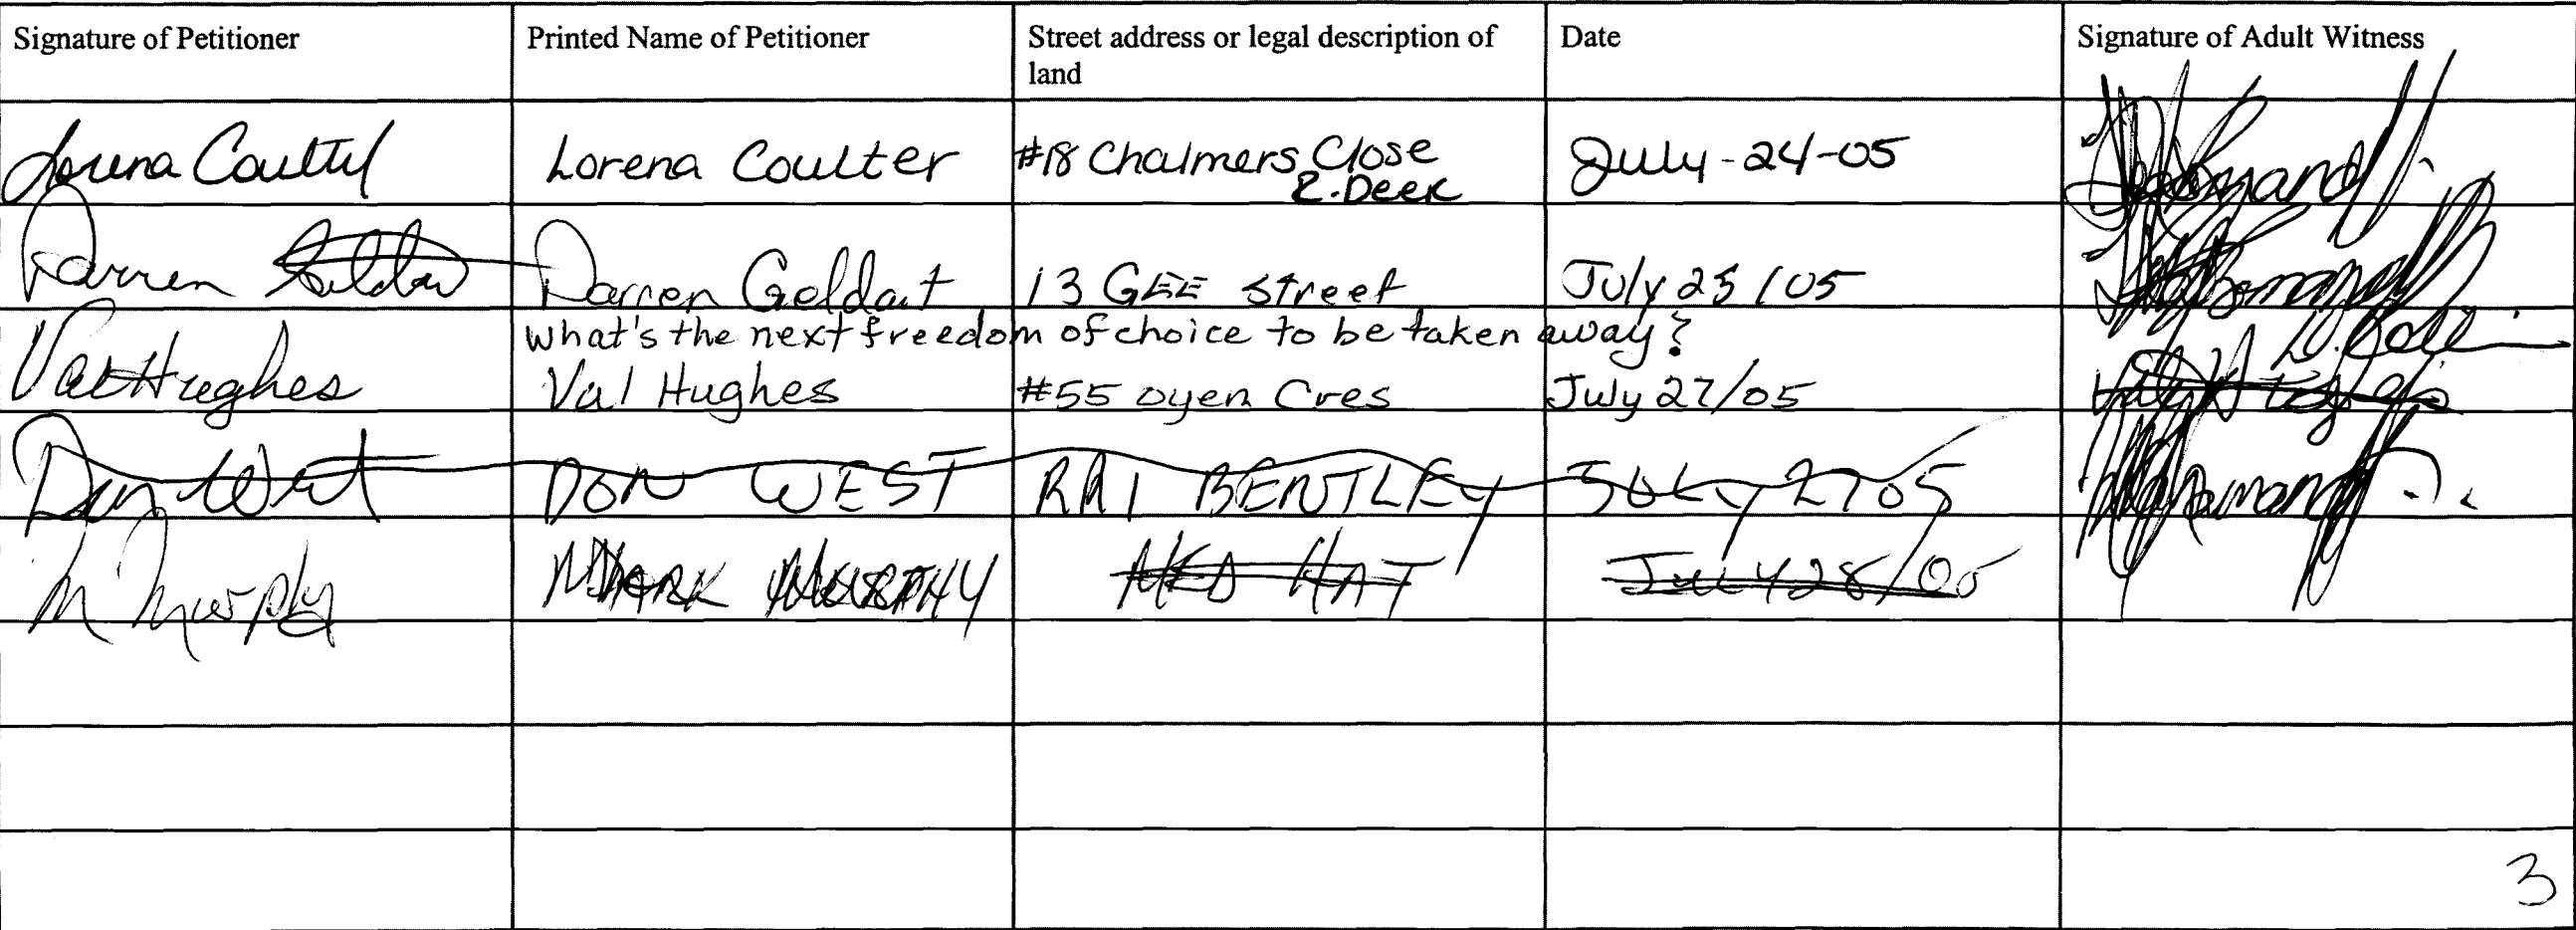 Signature of Petitioner Printed Name of Petitioner Street address or legal description of land Date Signature of Adult Witness
Lorena Coulter Lorena Coulter #18 Chalmers Close R. Deer July-24-05
Darren Geldart Darren Geldart 13 GEE street July 25/05
what's the next freedom of choice to be taken away?
Val Hughes Val Hughes #55 Oyen Cres July 27/05
Don West DON WEST RR1 BENTLEY JULY 27 05
M Murphy MARK MURPHY MED HAT JULY 28/05
3